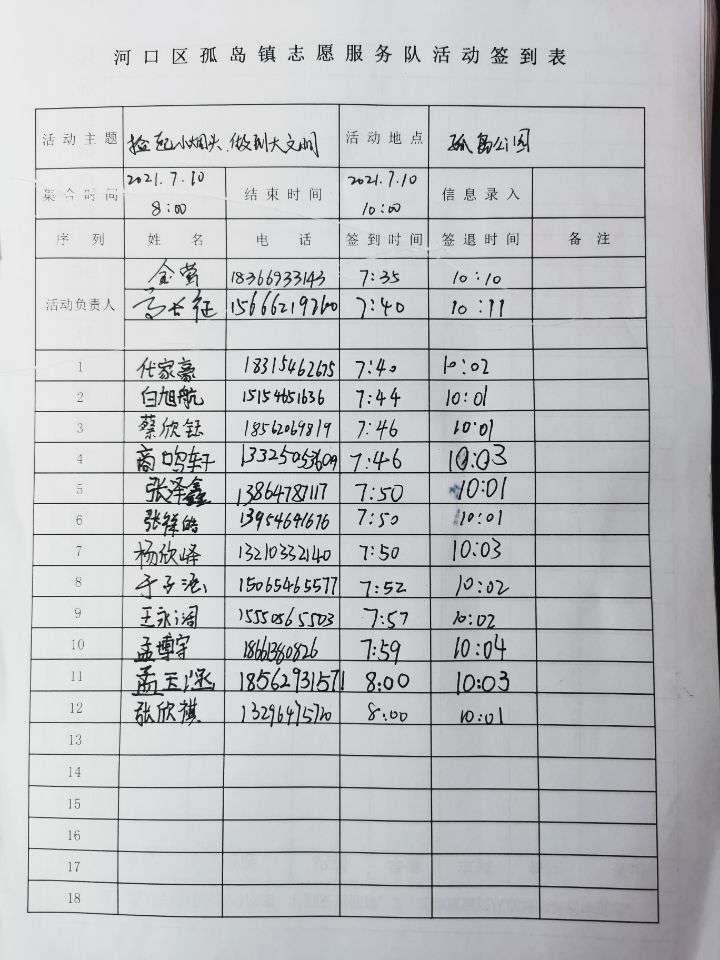 河口区孤岛镇志愿服务队活动签到表
活动主题 捡起小烟头,做到大文明 活动地点 孤岛公园
集合时间 2021.7.10 8:00 结束时间 2021.7.10 10:00 信息录入
序列 姓名 电话 签到时间 签退时间 备注
活动负责人
金莹 18366933143 7:35 10:10
高长征 15666219260 7:40 10:11
1 代家豪 18315462675 7:40 10:02
2 白旭航 15154651636 7:44 10:01
3 蔡欣钰 18562069819 7:46 10:01
4 商鸣轩 13325053609 7:46 10:03
5 张泽鑫 13864787117 7:50 10:01
6 张梓皓 13954691676 7:50 10:01
7 杨欣峄 13210332140 7:50 10:03
8 于子涵 15065465577 7:52 10:02
9 王永阔 15550565503 7:57 10:02
10 孟博宇 18661380826 7:59 10:04
11 18562931571 8:00 10:03
12 张欣祺 13296475720 8:00 10:01
13
14
15
16
17
18